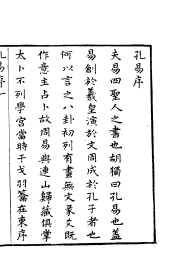 孔易序
夫易四聖人之書也胡獨曰孔易也蓋
易創於羲皇演於文周成於孔子者也
何以言之八卦初列有畫無文彖爻既
作意主占卜故周易與連山歸藏俱掌
太卜不列學宮當時干戈羽籥在東序
孔易序一